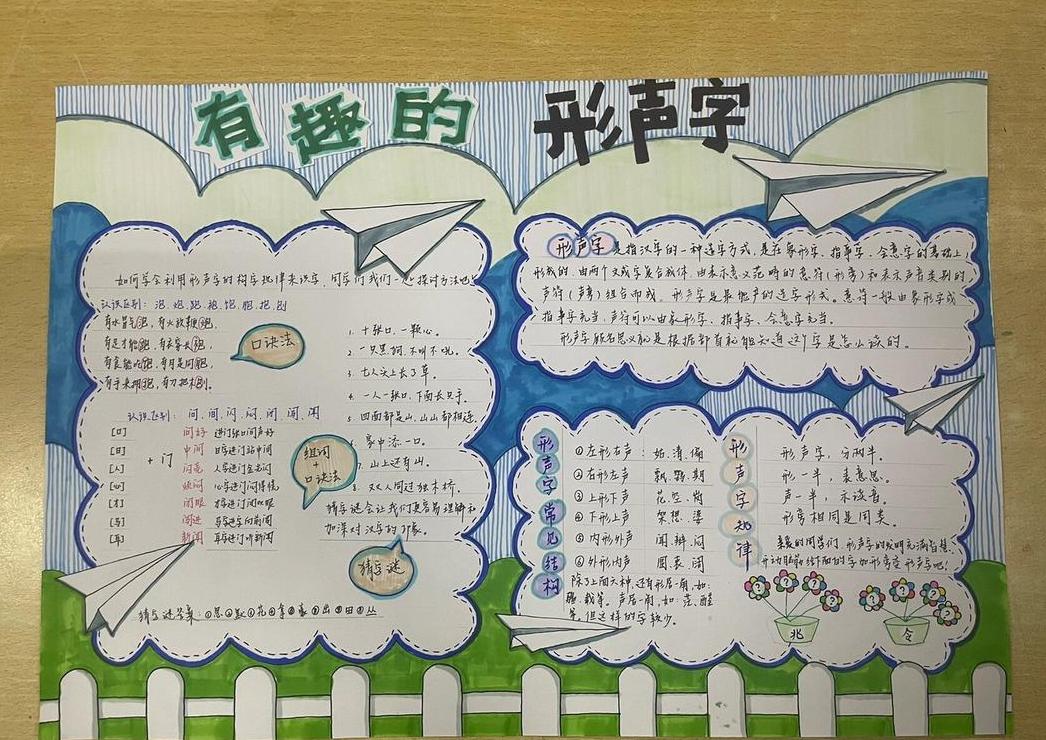 有趣的 形声字
如何学会利用形声字的构字规律来识字,同学们我们一起探讨方法吧
认识区别: 泡.炮.跑.袍.饱.胞.抱.刨
有水冒气泡,有火放鞭炮,
有足才能跑,有衣穿长袍,
有食能吃饱,有月是同胞,
有手来拥抱,有刀把木刨。
口诀法
认识区别: 问.间.闪.闷.闭.闯.闻
[口] 问好 进门张口问声好
[日] 中间 日字进门站中间
[人] 闪亮 人字进门金光闪
[心] 心字进门闷得慌
[才] 闭眼 才字进门闭眼
[马] 闯进
[耳] 新闻 耳字进门听新闻
+ 门
组词
+
口诀法
1. 十张口,一颗心。
2. 一只黑狗,不叫不吼。
3. 七人头上长了草。
4. 一人一张口,下面长只手。
5. 四面都是山,山山都相连
添一口。
7. 山上还有山。
8. 双人同过独木桥。
猜字谜会让我们更容易理解和
加深对汉字的印象。
猜字谜
猜字谜答案: ①思②默③花④拿
形声字是指汉字的一种造字方式,是在象形字、指事字、会意字的基础上
形成的,由两个文或字复合成体,由表示意义范畴的意符(形旁)和表示声音类别的
声符(声旁)组合而成。形声字是最能产的造字形式。意符一般由象形字或
指事字充当,声符可以由象形字、指事字、会意字充当。
形声字顾名思义就是根据部首就能知道这个字是怎么读的。
形声字常见结构
①左形右声: 姑.清.
②右形左声 期
③上形下声 花
④下形上声 架.想.婆
⑤内形外声 闻.辩.问
⑥外形内声 圆.裹.阁
除了上面六种,还有形居一角,如:
栽等。声居一角,如
等,但这样的字较少。
形声字规律
形声字,分两半。
形一半,表意思。
声一半,示读音。
形旁相同是同类。
亲爱的同学们,形声字的发明充满智慧,
开动脑筋给下面的字加形旁变形声字吧!
? ? ? ? ? ? ? ?
兆 令